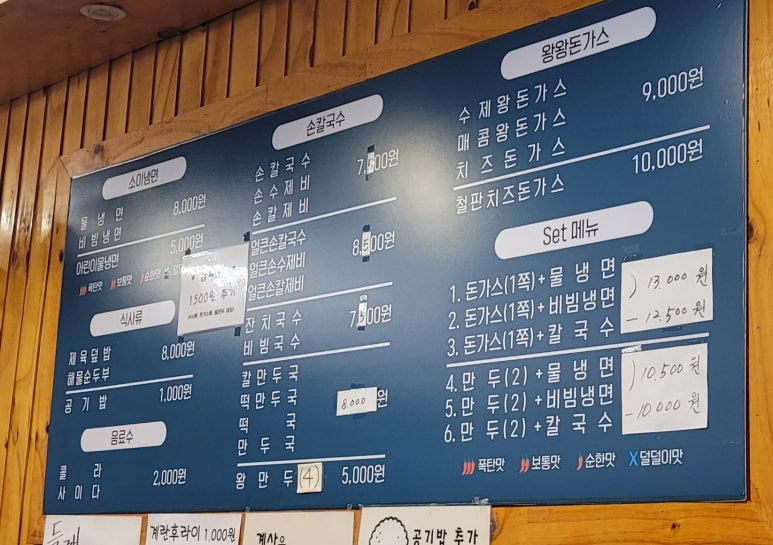 소이냉면
물냉면
비빔냉면
8,000원
어린이물냉면
5,000원
폭탄맛 보통맛 순한맛
1500원 추가
식사류
제육덮밥
해물순두부
8,000원
공기밥
1,000원
음료수
콜라
사이다
2,000원
손칼국수
손칼국수
손수제비
손칼제비
7,500원
얼큰손칼국수
얼큰손수제비
얼큰손칼제비
8,500원
잔치국수
비빔국수
칼만두국
떡만두국
떡국
만두국
8.000원
왕만두(4)
5,000원
왕왕돈가스
수제왕돈가스
매콤왕돈가스
9,000원
치즈돈가스
철판치즈돈가스
10,000원
Set 메뉴
1. 돈가스(1쪽)+물냉면
2. 돈가스(1쪽)+비빔냉면
) 13.000원
3. 돈가스(1쪽)+칼국수
- 12.500원
4. 만두(2)+물냉면
5. 만두(2)+비빔냉면
) 10.500원
6. 만두(2)+칼국수
- 10.000원
폭탄맛 보통맛 순한맛 X덜덜이맛
계란후라이 1,000원
계산은
공기밥 추가